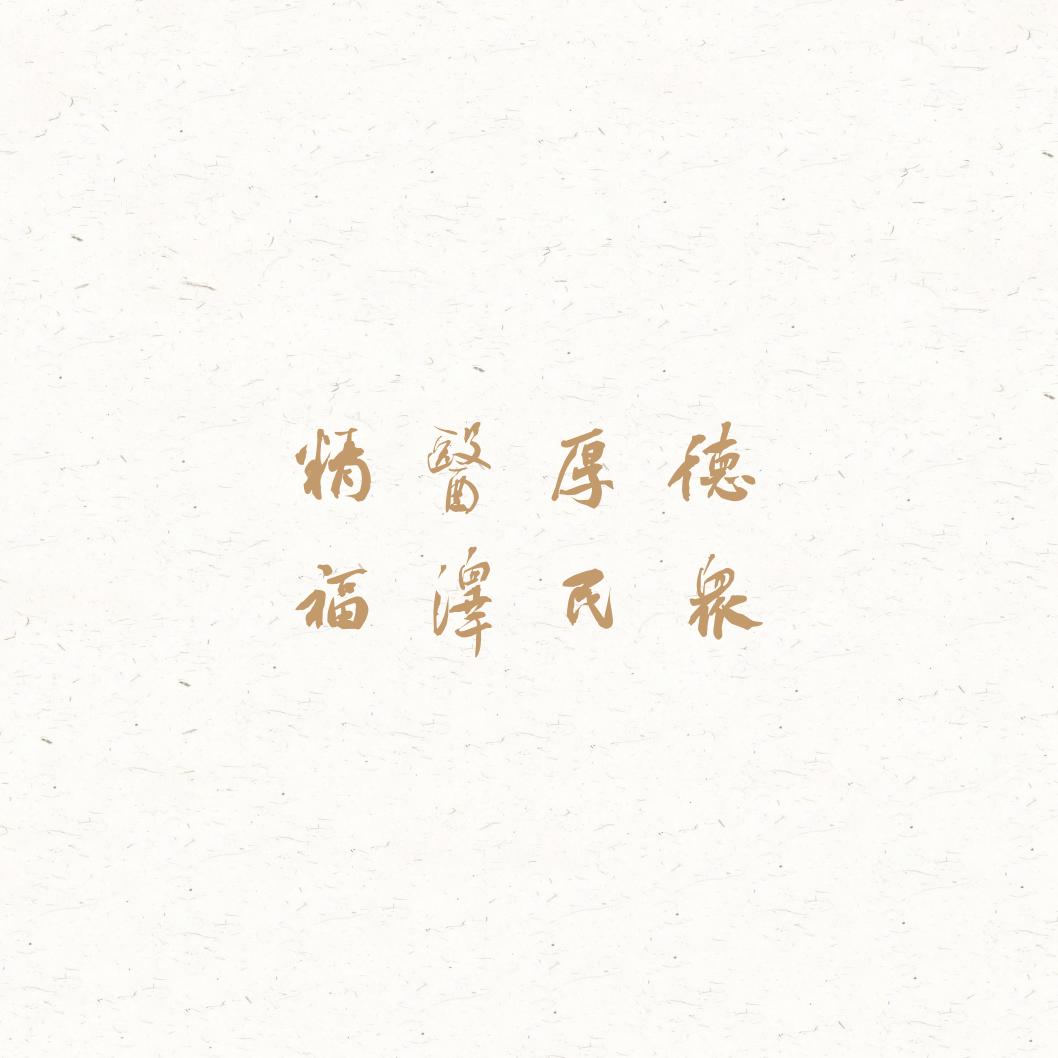 精醫厚德
福澤民眾